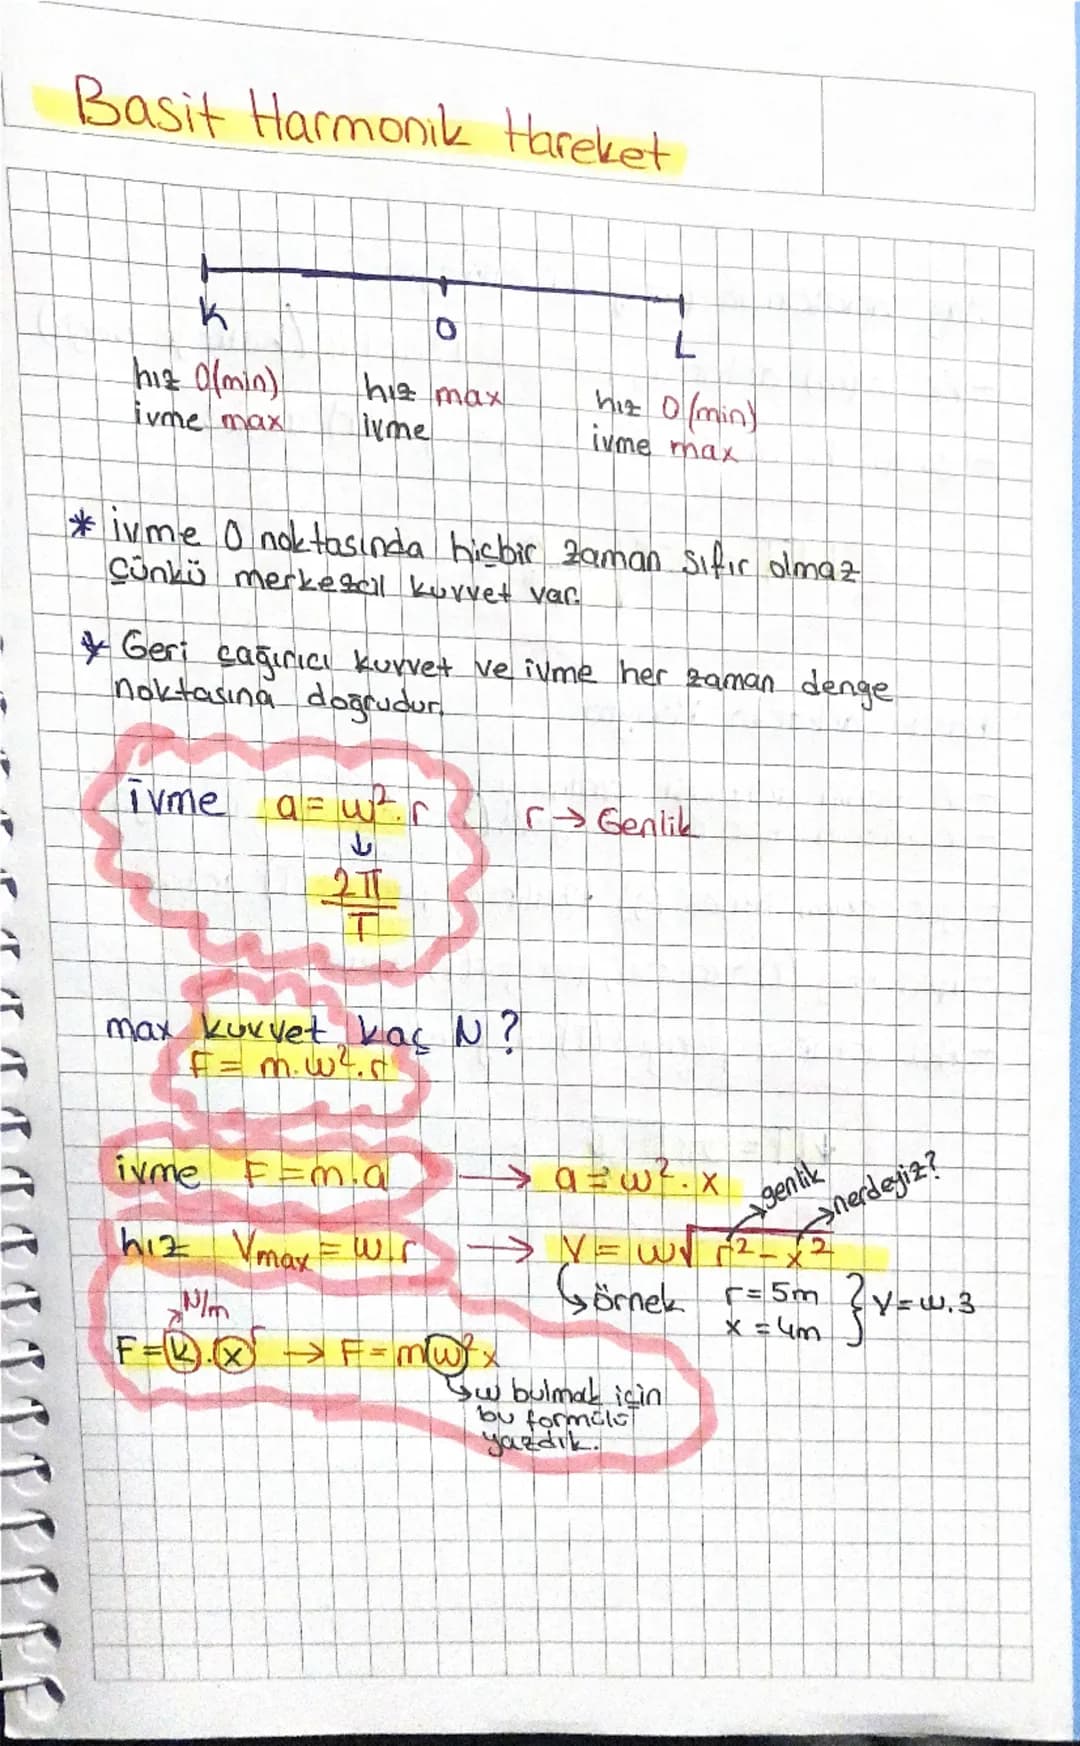 Basit Harmonik Hareket
K O L
hız 0(min) hız max hız 0 (min)
ivme max ivme ivme max
* ivme O noktasında hiçbir zaman sıfır olmaz
çünkü merkezcil kuvvet var.
* Geri çağırıcı kuvvet ve ivme her zaman denge
noktasına doğrudur.
İvme a = w².r r → Genlik
↓
2π
T
max kuvvet kaç N?
F = m.w².r
ivme F = m.a → a = w².x
genlik nerdeyiz?
hız Vmax = w.r → V = w√r²-x²
örnek r = 5m } V = w.3
x = 4m
N/m
F = k.x → F = mw²x
w bulmak için
bu formülü
yazdık.